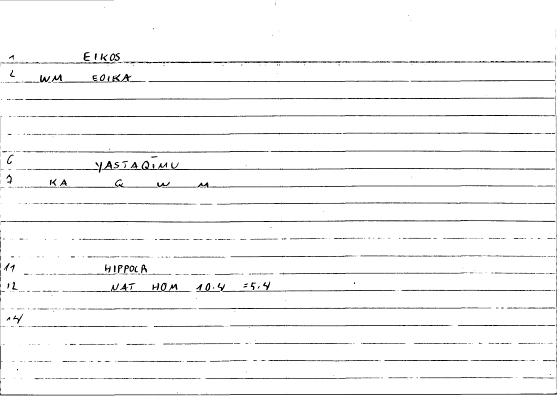 1 EIKOS
2 WM EOIKA
6 YASTAQĪMU
7 KA Q W M
11 HIPPOCR
12 NAT HOM 10.4 =5.4
14